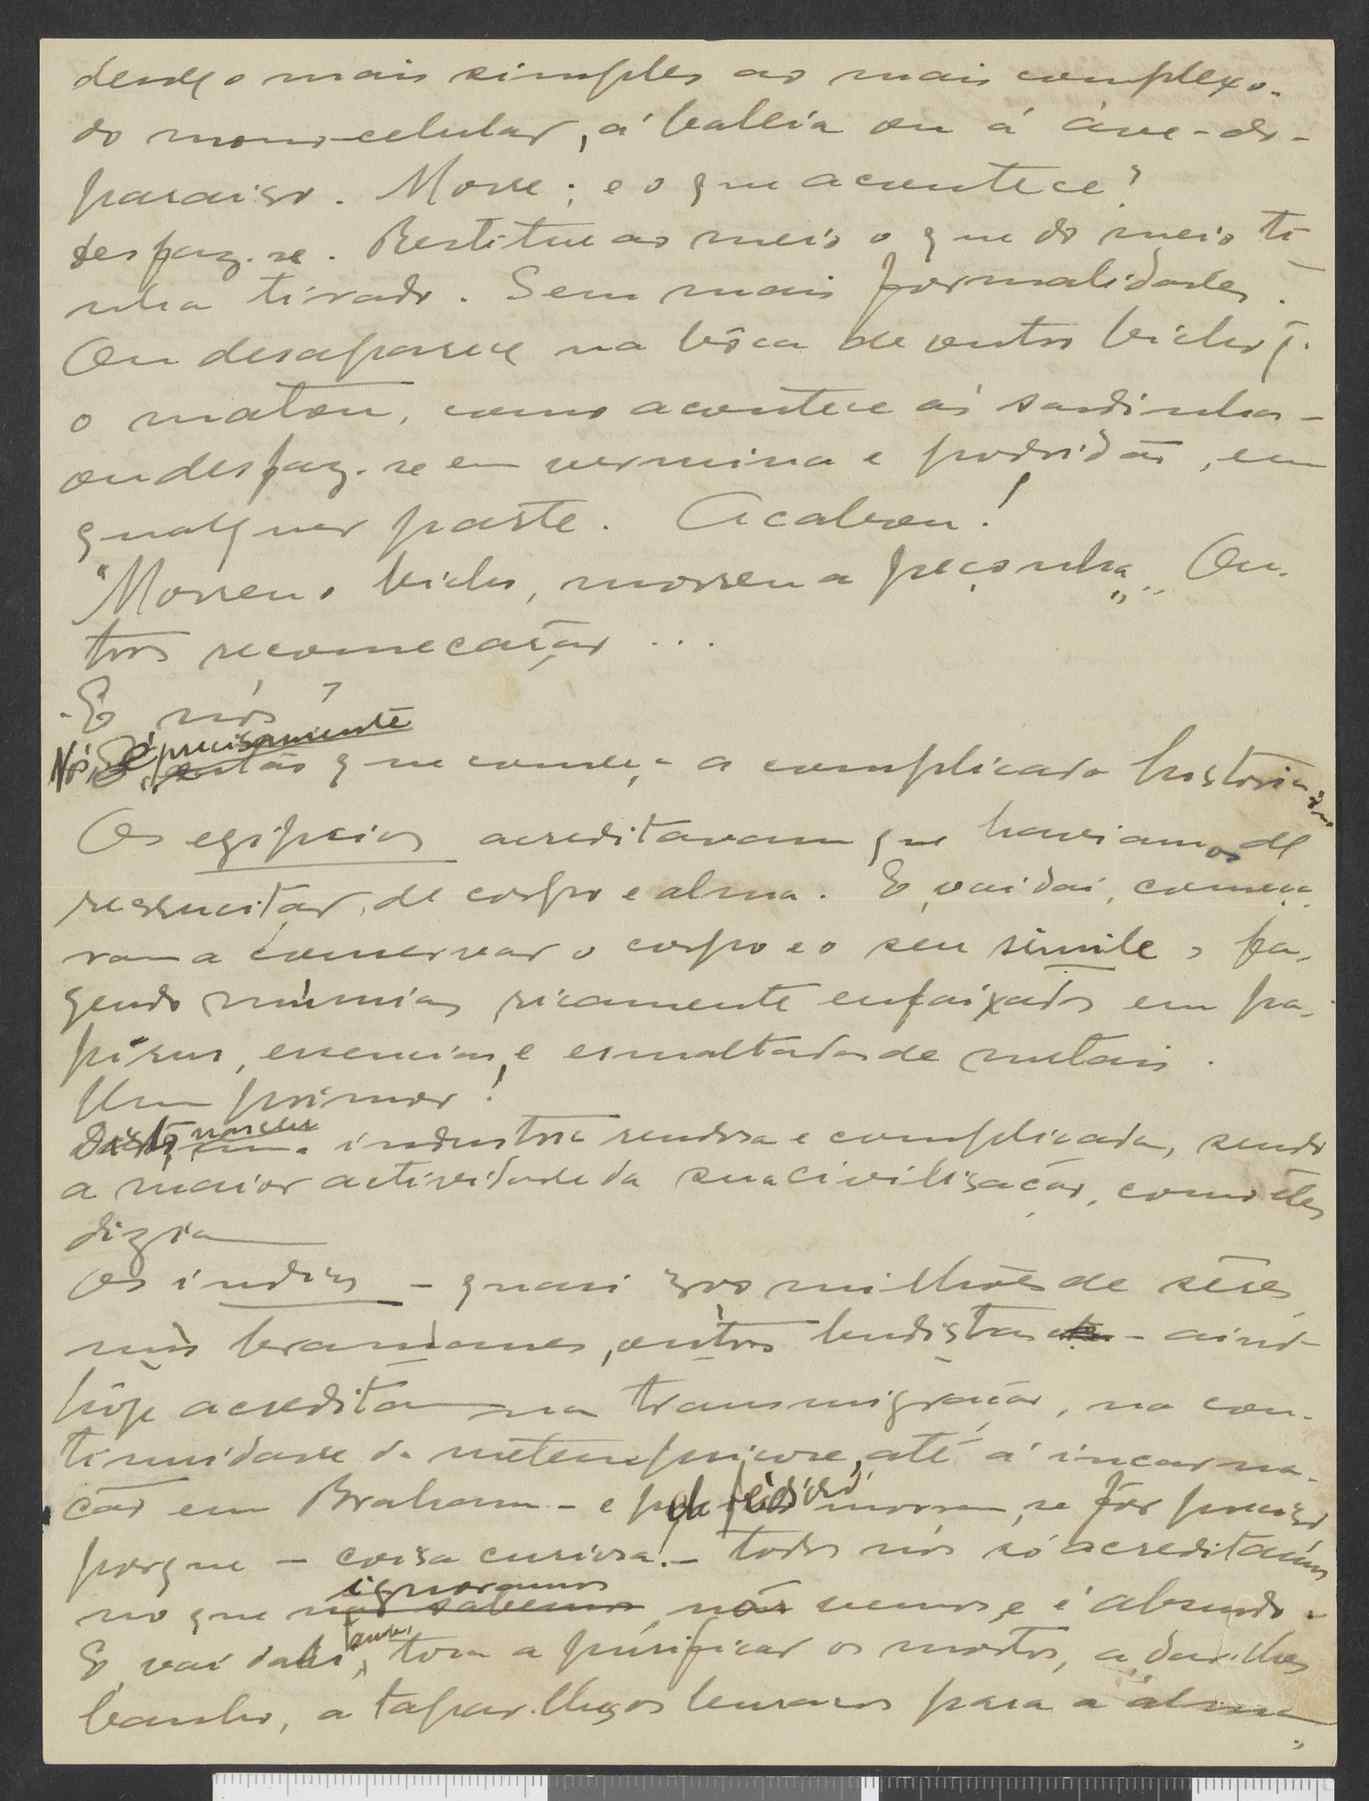 desde o mais simples ao mais complexo.
do mono-celular, á balleia ou á ave-do-
paraiso. Morre; e o que acontece?
desfaz-se. Restitue ao meio o que do meio ti
nha tirado. Sem mais formalidades.
Ou desaparece na bôca de outro bicho q.
o matou, como acontece ás sardinhas -
ou desfaz-se em vermina e podridão, em
qualquer parte. Acabou!
"Morreu o bicho, morreu a peçonha". Ou-
tros recomeçarão...
- E nós?
Nós, é precisamente que começa a complicada historia
Os egipcios acreditavam que haviamos de
ressucitar, de corpo e alma. E vai dai, começa
ram a conservar o corpo e o seu simile, fa-
zendo múmias ricamente enfaixadas em pa-
pirus, essencias, e esmaltadas de metais.
Um primor!
Disto, nasceu industria rendosa e complicada, sendo
a maior actividade da sua civilisação, como êles
diziam
Os indios - quasi 300 milhões de sêres,
uns bramanes, outros budistas - ainda
hoje acreditam na transmigração, na con-
tinuidade da metempsicose, até á incarna-
ção em Braham - e por isso morrem, se fôr preciso
porque - coisa curiosa! - todos nós só acreditamos
no que ignoramos não vemos, e é absurdo.
E vai dahi, toca a purificar os mortos, a dar-lhes
banho, a tapar-lhes os buracos para a alma